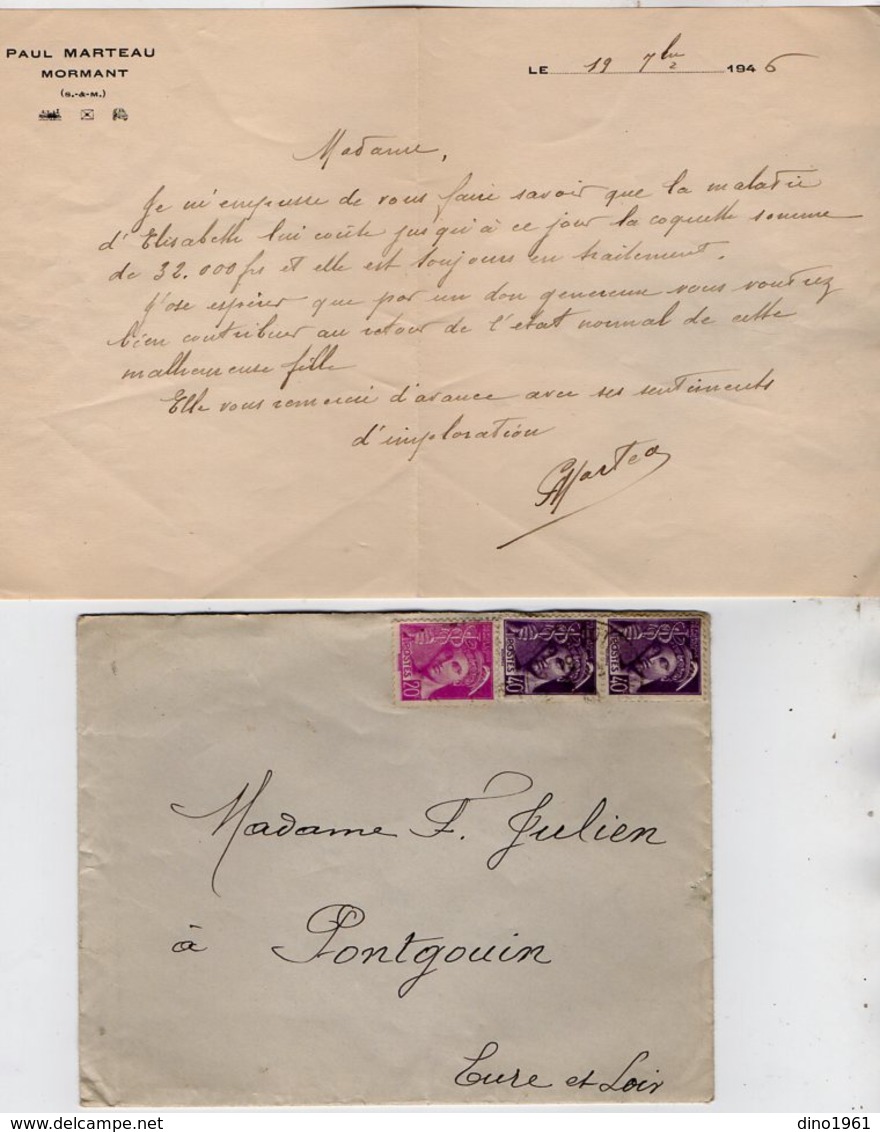 PAUL MARTEAU
MORMANT
(S.-&-M.)
LE 19 7bre 1946
Madame,
Je m'empresse de vous faire savoir que la maladie
d'Elisabeth lui coûte jusqu'à ce jour la coquette somme
de 32.000 frs et elle est toujours en traitement.
J'ose espérer que par un don genereux vous voudrez
bien contribuer au retour de l'état normal de cette
malheureuse fille
Elle vous remercie d'avance avec ses sentiments
d'imploration
PMarteau
POSTES 20
POSTES 40
POSTES 40
Madame F. Julien
à Pontgouin
Eure et Loir
dino1961